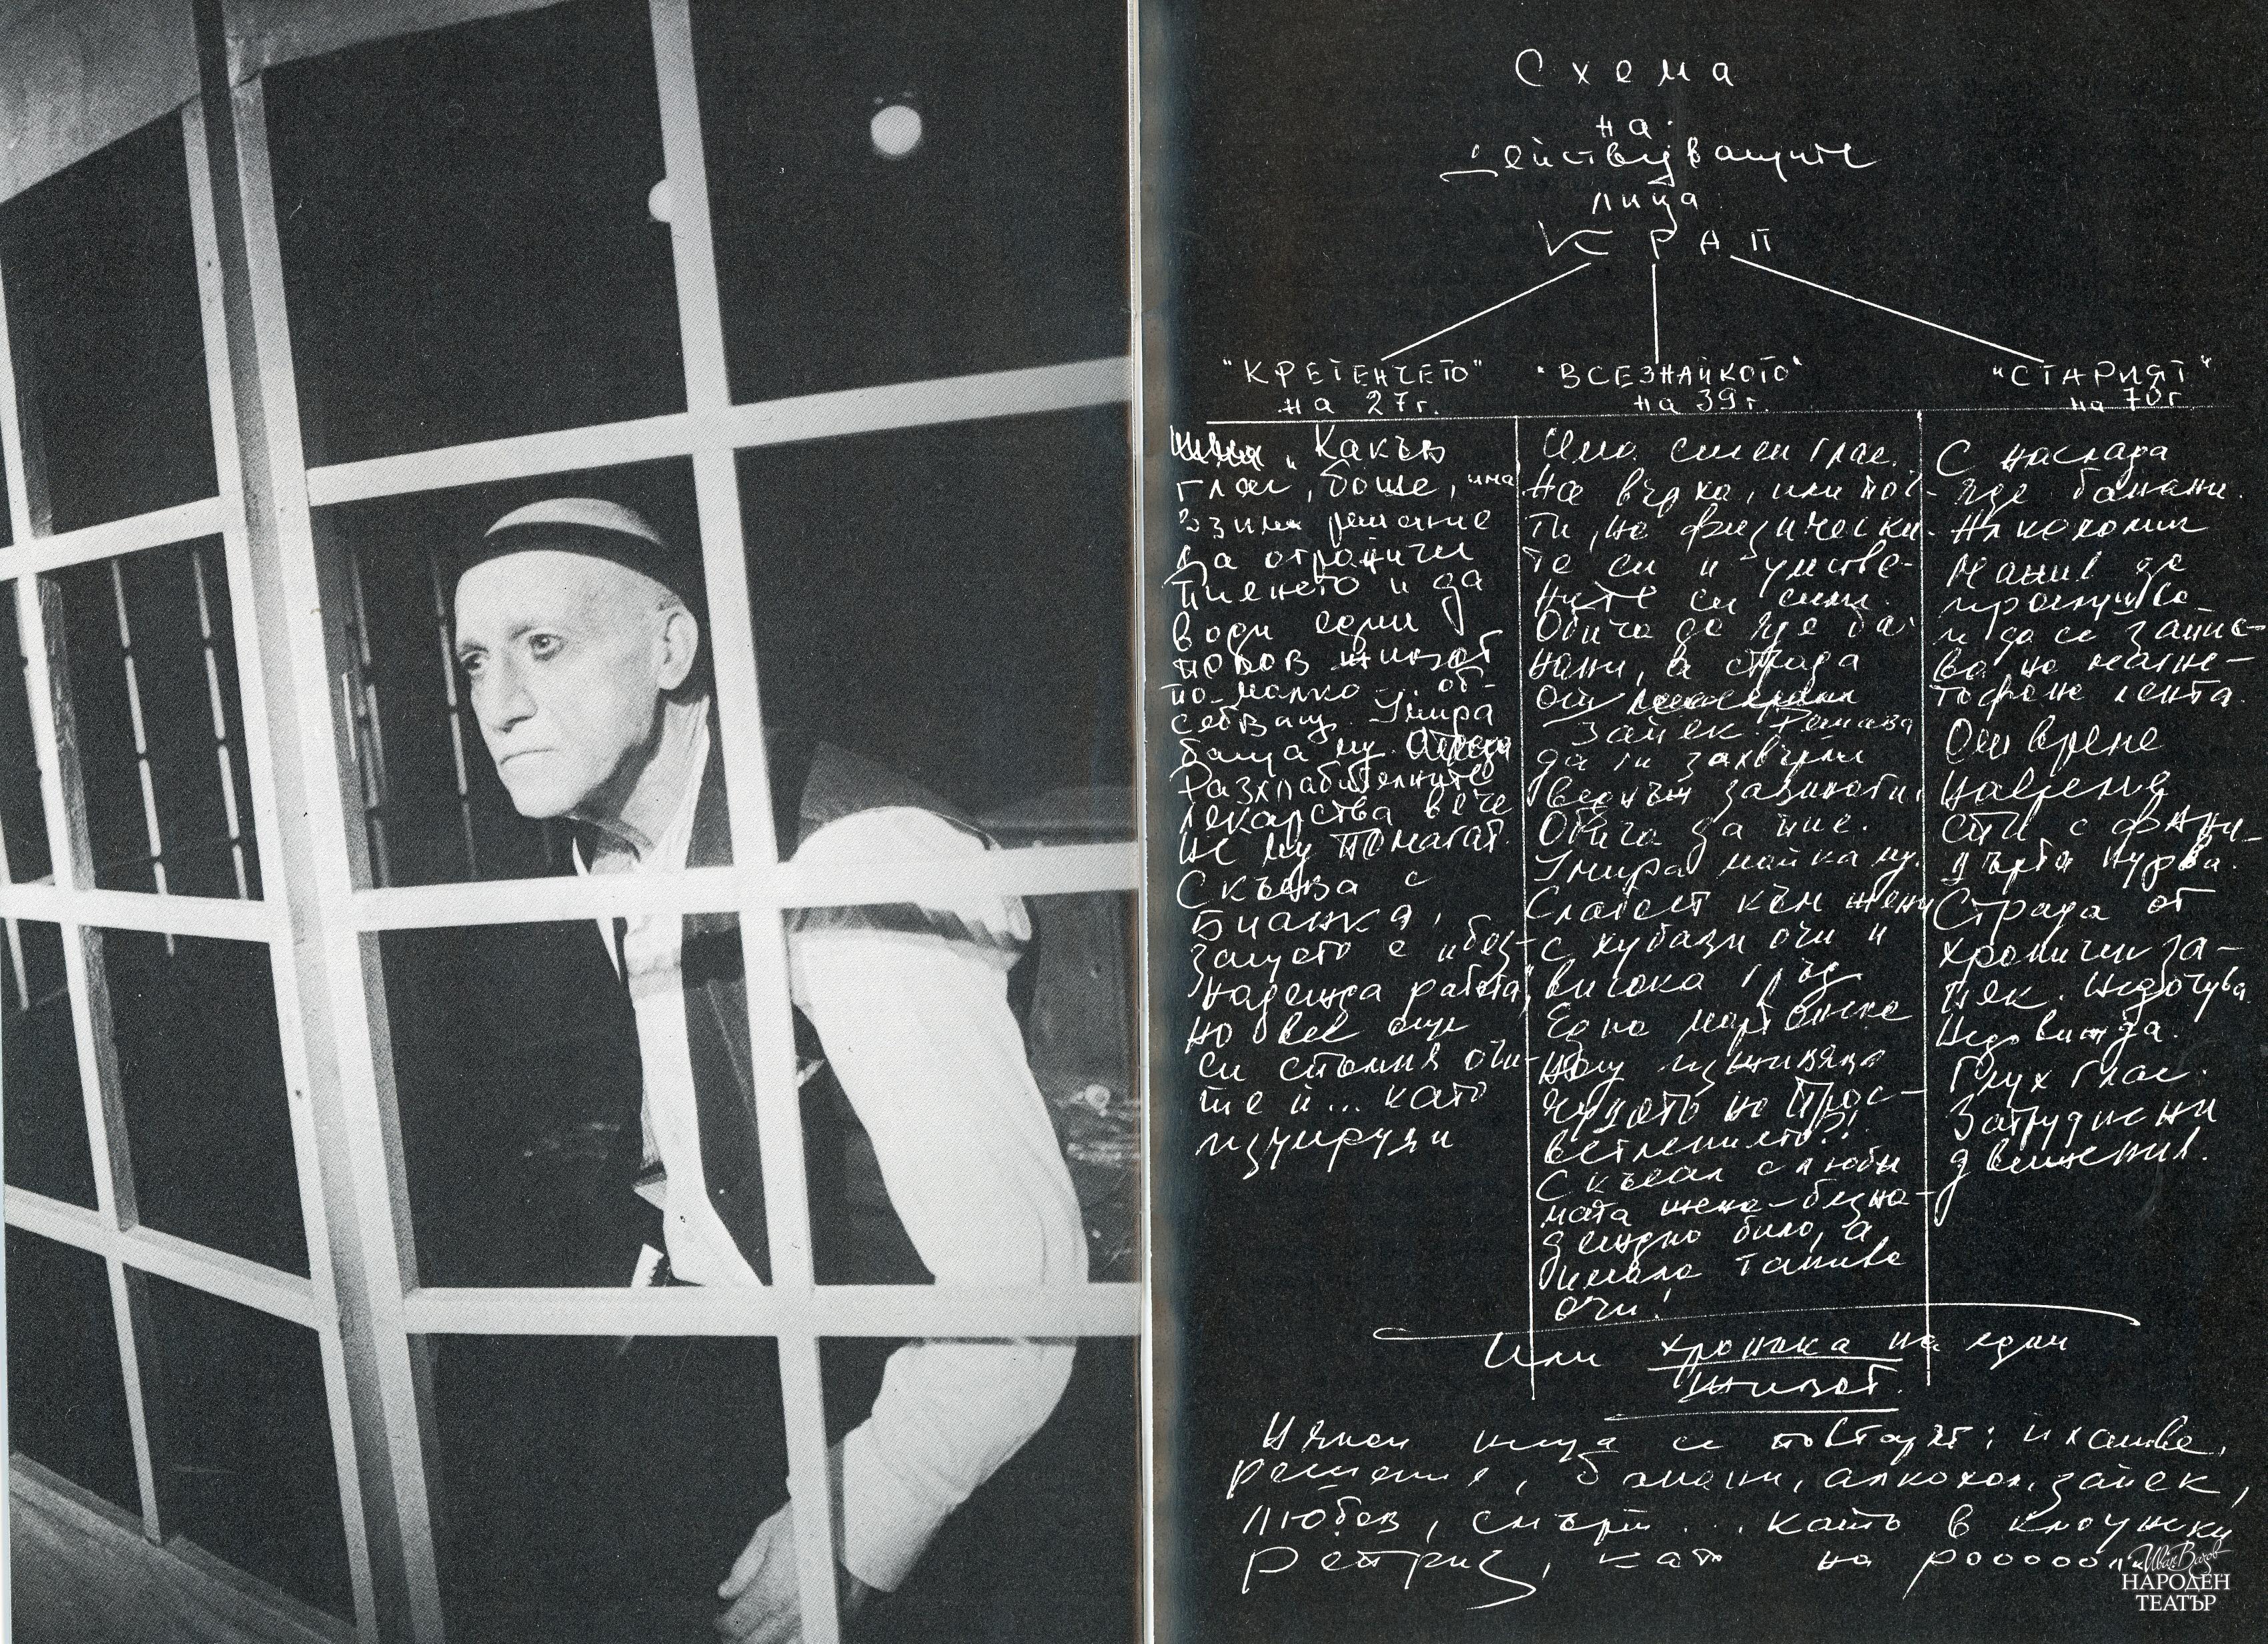 Схема
на
действуващите
лица
КРАП
"КРЕТЕНЧЕТО"
на 27г.
"Какъв
глас, боже, има
взима решение
да ограничи
пиенето и да
води един
нов живот
по-малко об-
себващ. Умира
баща му.
Разхлабителните
лекарства вече
не му помагат.
Скъсва с
Бианка,
защото е "без-
надеждна работа",
но все още
си спомня очи-
те й... като
изумруди
"ВСЕЗНАЙКОТО"
на 39г.
Има силен глас.
На върха, или поч-
ти, на физически-
те си и умстве-
ните си сили.
Обича да яде ба-
нани, а страда
от
запек. Решава
да ги захвърли
веднъж завинаги.
Обича да пие.
Умира майка му.
Слабост към жени
с хубави очи и
висока гръд
Една мартенска
нощ изживява
чудото на Прос-
ветлението?!
Скъсал с люби-
мата жена - безна-
деждно било, а
имала такива
очи!
"СТАРИЯТ"
на 70г
С наслада
яде банани.
Алкохолик
Мания да
прослушва
и да се запис-
ва на магне-
тофонна лента.
От време
навреме
спи с
дърта курва.
Страда от
хроничен за-
пек. Недочува
Недовижда.
Глух глас.
Затруднени
движения.
Или хроника на един
живот.
Някои неща се повтарят:
решения, банани, алкохол, запек,
любов, смърт... като в клоунску
реприз, като на
Иван Вазов
НАРОДЕН
ТЕАТЪР